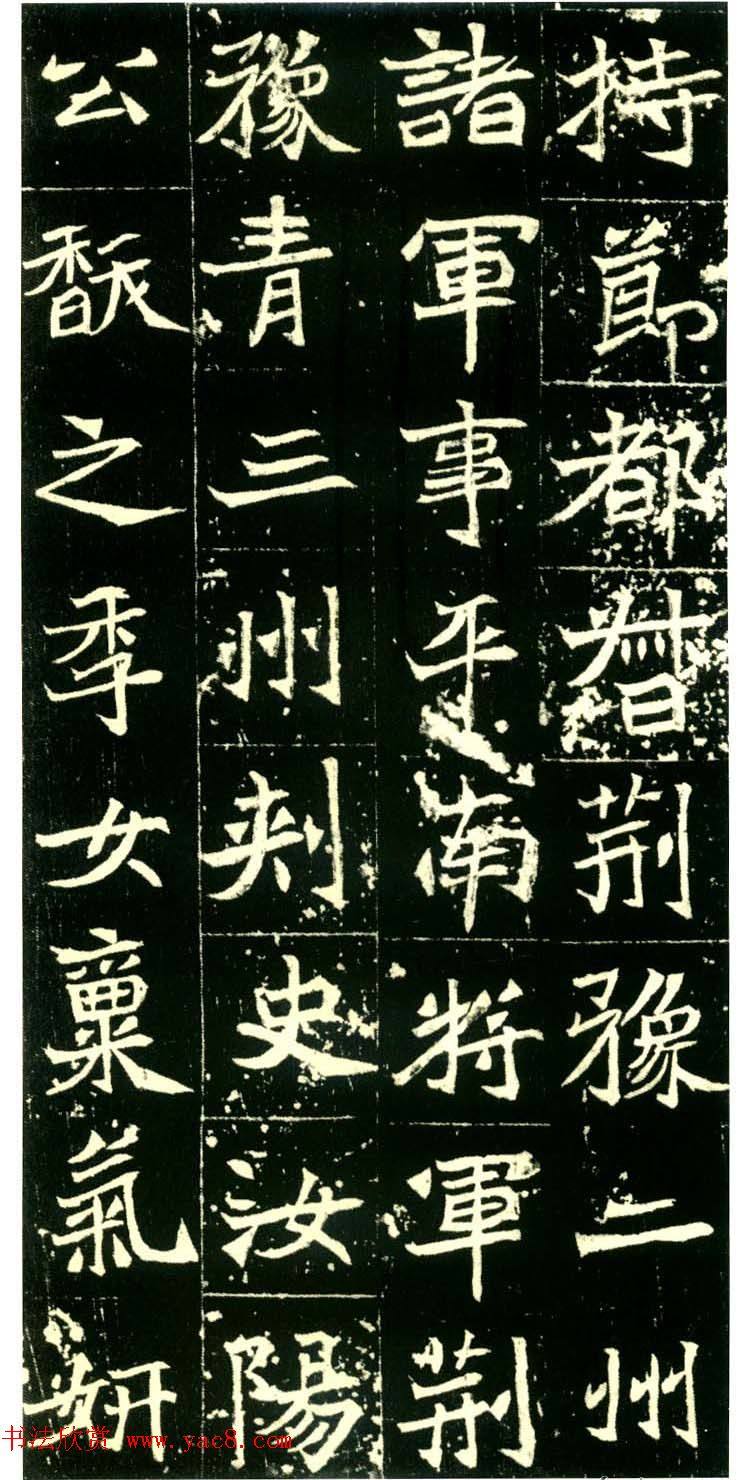 持莭都督荆豫二州
諸軍事平南將軍荆
豫青三州刾史汝陽
公馛之季女稟氣妍
书法欣赏 www.yac8.com